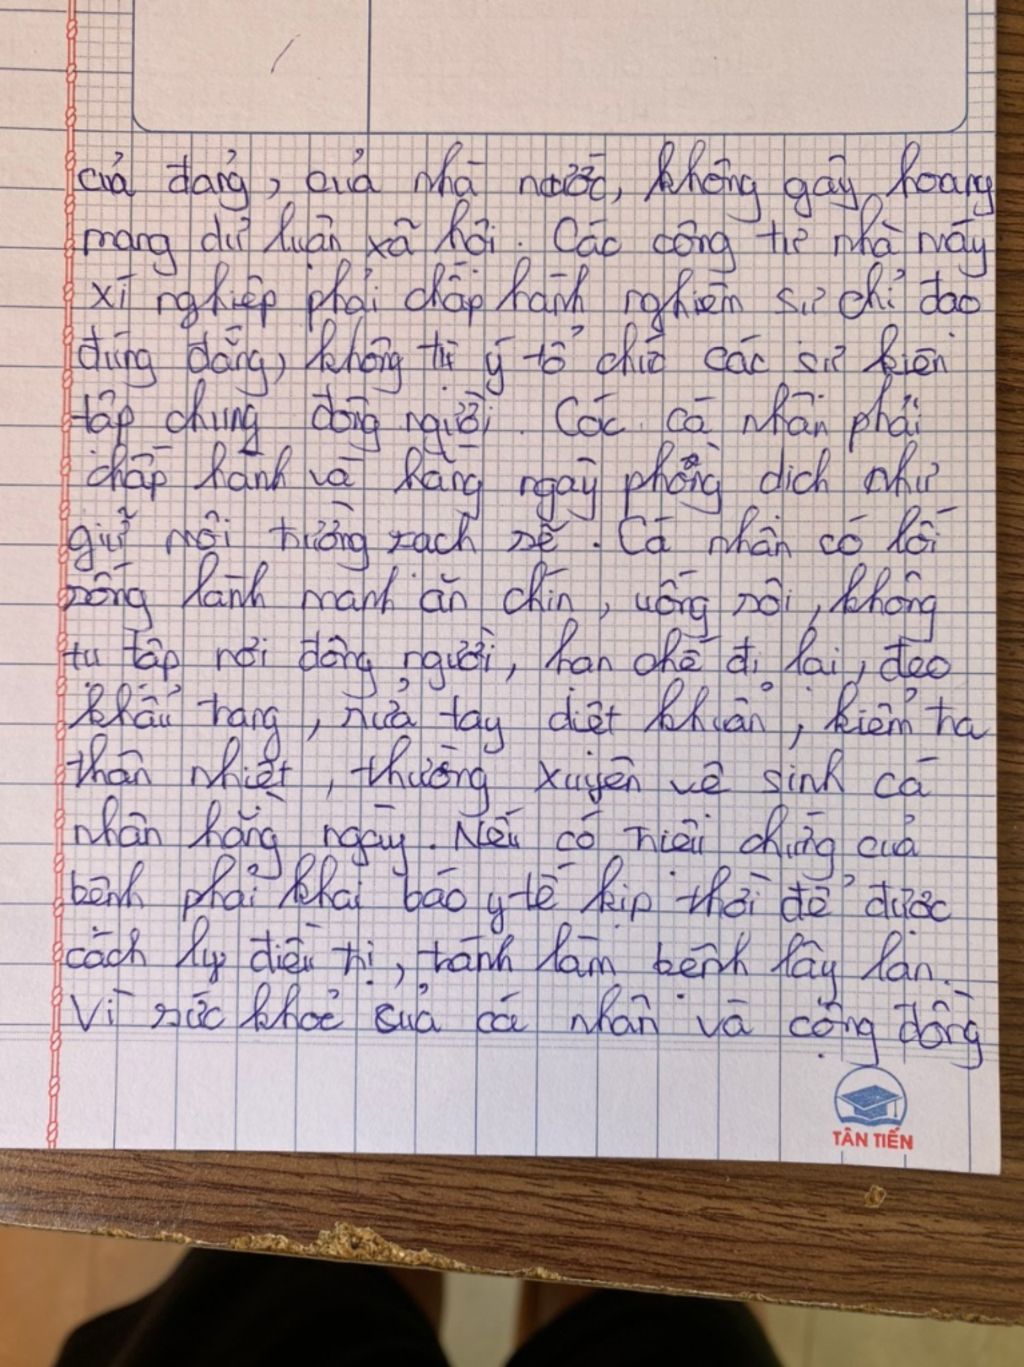 của đảng, của nhà nước, không gây hoang
mang dư luận xã hội. Các công ty nhà máy
xí nghiệp phải chấp hành nghiêm sự chỉ đạo
đúng đắng, không tự ý tổ chức các sự kiện
tập chung đông người. Các cá nhân phải
chấp hành và hằng ngày phòng dịch như
giữ môi trường sạch sẽ. Cá nhân có lối
sống lành mạnh ăn chín, uống sôi, không
tụ tập nơi đông người, hạn chế đi lại, đeo
khẩu trang, rửa tay diệt khuẩn, kiểm tra
thân nhiệt, thường xuyên vệ sinh cá
nhân hằng ngày. Nếu có triệu chứng của
bệnh phải khai báo y tế kịp thời để được
cách ly điều trị, tránh làm bệnh lây lan.
Vì sức khoẻ của cá nhân và cộng đồng
TÂN TIẾN